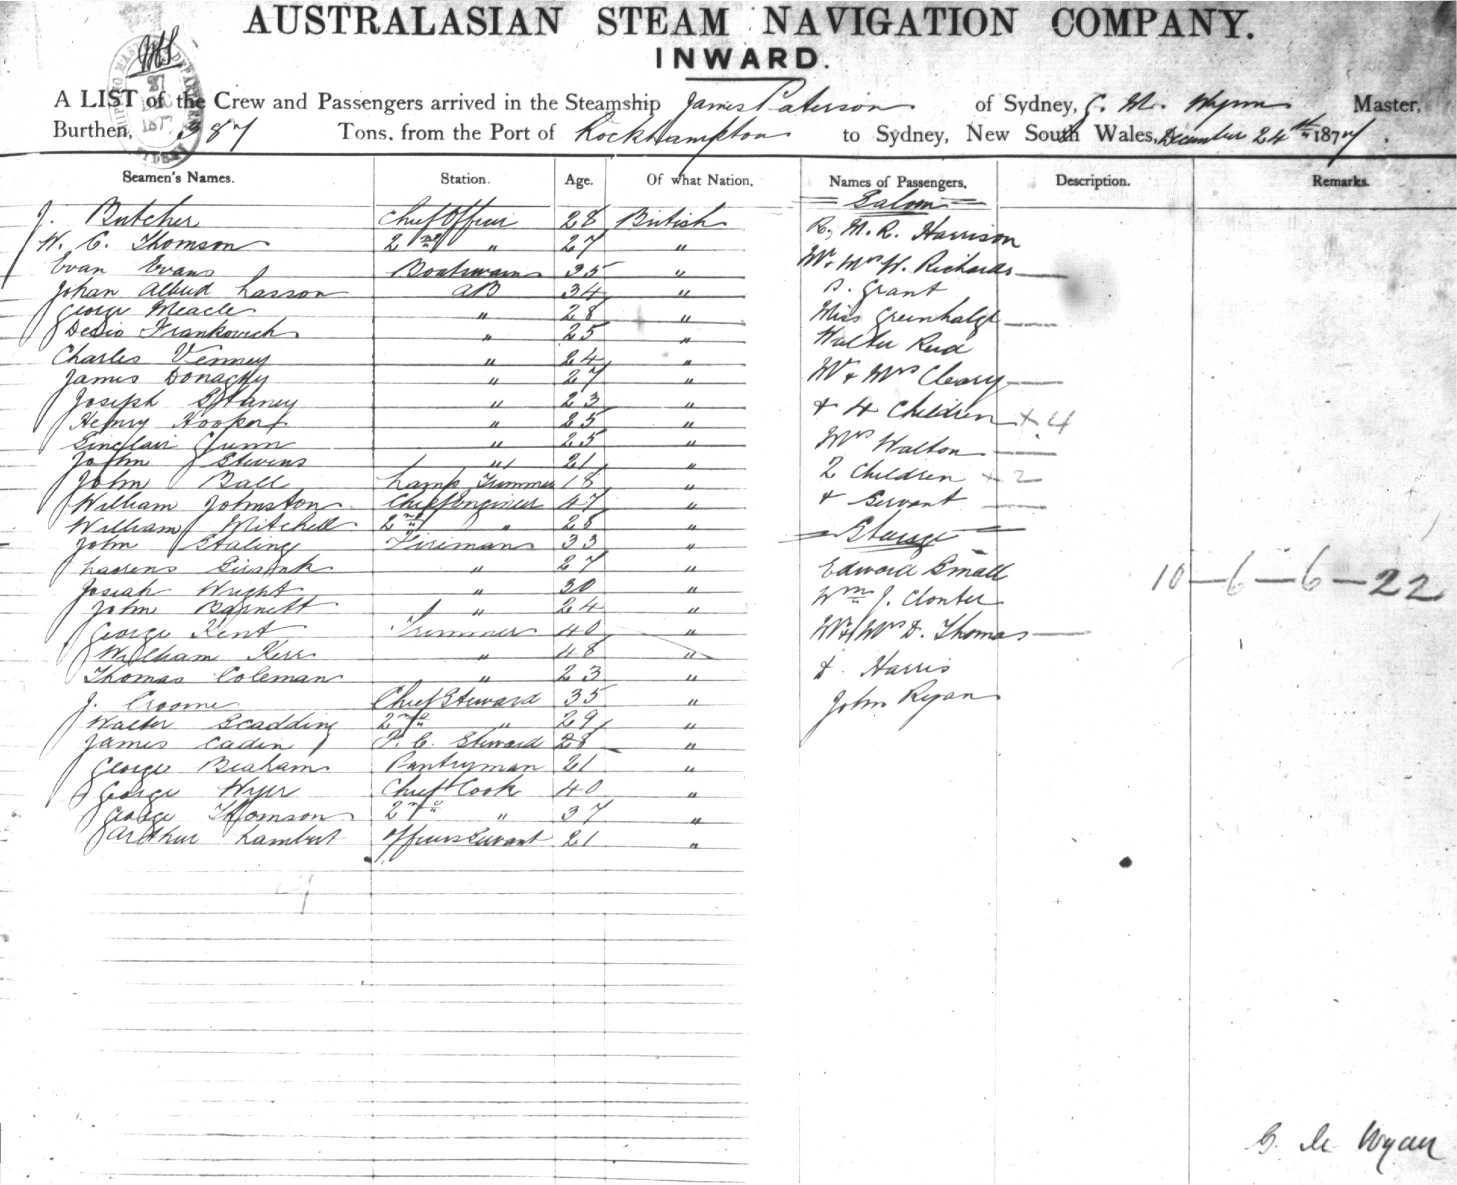 AUSTRALASIAN STEAM NAVIGATION COMPANY.
INWARD.
A LIST of the Crew and Passengers arrived in the Steamship James Paterson of Sydney, G. M. Wynn Master,
Burthen, 387 Tons. from the Port of Rockhampton to Sydney, New South Wales, December 24th 1877.
Seamen's Names. Station. Age. Of what Nation. Names of Passengers. Description. Remarks.
Saloon
J. Butcher Chief Officer 28 British R. M. R. Harrison
W. C. Thomson 2nd " 27 "
Evan Evans Boatswain 35 " Mr. Mrs W. Richards
Johan Lasson AB 34 " Grant
George Meacle " 28 " Miss Greenhalgh
Frankovich " 25 " Walter Reid
Charles Venney " 24 "
James Donaghy " 27 " Mr & Mrs Cleary
Joseph " 23 " & 4 Children + 4
Henry Hooper " 25 "
Sinclair Gunn " 25 " Mrs Walton
John Stevens " 21 "
John Ball Lamp Trimmer 18 " 2 Children + 2
William Johnston Chief Engineer 47 " & Servant
William Mitchell 2nd " 28 " Steerage
John Staling Fireman 33 "
" 27 " Edward Small 10 - 6 - 6 - 22
Josiah Wright " 30 " Wm J.
John Barnett " 24 "
George Kent Trimmer 40 " Mr & Mrs D. Thomas
William Kerr " 48 "
Thomas Coleman " 23 " Harris
J. Croome Chief Steward 35 " John Ryan
Walter Scadding 2nd " 29 "
James Caden F. C. Steward 28 "
George Beaham Pantryman 21 "
George Wyer Chief Cook 40 "
George Thomson 2nd " 37 "
Arthur Lambert Officers Servant 21 "
G. M. Wynn